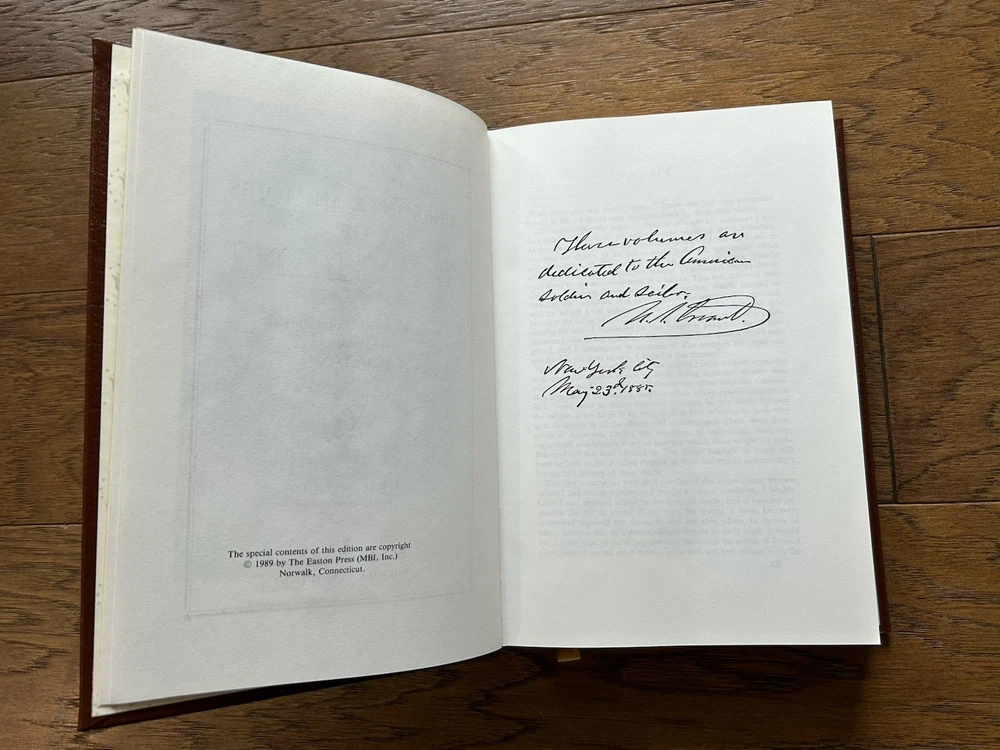 The special contents of this edition are copyright
© 1989 by The Easton Press (MBI, Inc.)
Norwalk, Connecticut.
These volumes are
dedicated to the American
soldier and sailor.
U. S. Grant.
New York City
May 23d. 1885.